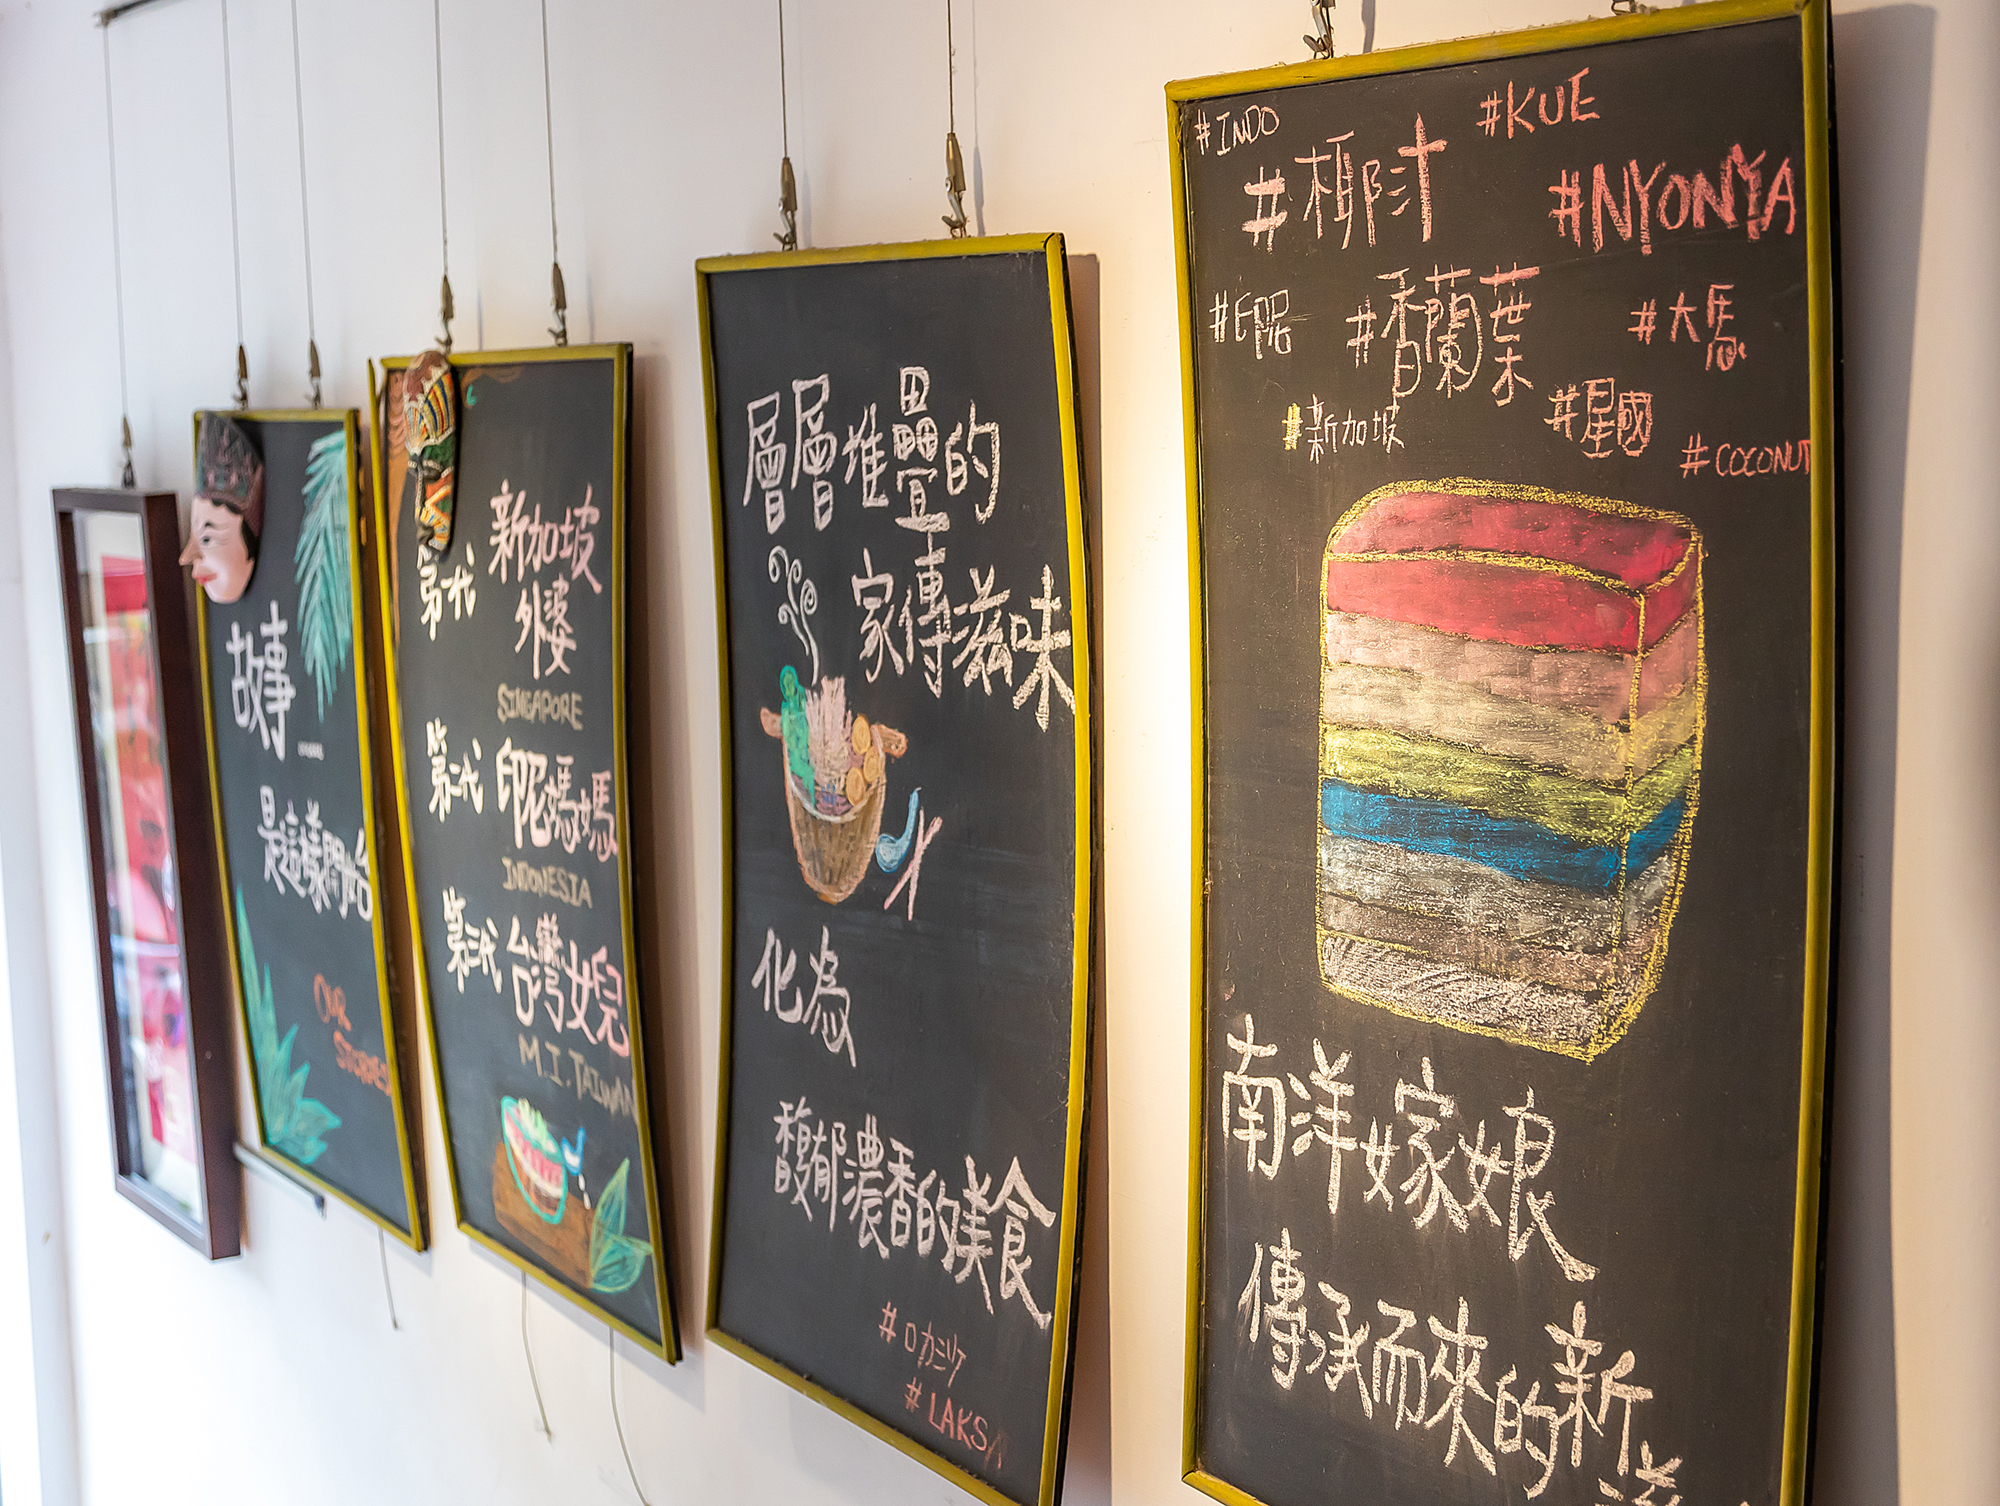 故事
是這樣開始
OUR
STORIES
第一代 新加坡
外婆
SINGAPORE
第二代 印尼媽媽
INDONESIA
第三代 台灣女兒
M.I.TAIWAN
層層堆疊的
家傳滋味
化為
馥郁濃香的美食
#叻沙
#LAKSA
#INDO #KUE
#椰汁 #NYONYA
#印尼 #香蘭葉 #大馬
#新加坡 #星國
#COCONUT
南洋嫁娘
傳承而來的新